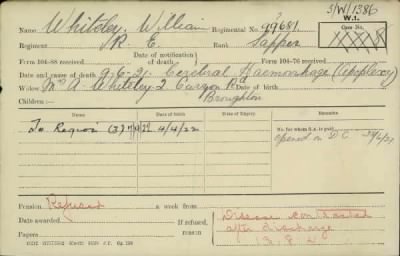 3/W/1386
W.I.
Name Whiteley, William Regimental No. 99681 Case No.
Regiment R. E. Rank Sapper
Form 104-88 received Date of notification of death Form 104-76 received
Date and cause of death 9.6.21. Cerebral Haemorrhage (Apoplexy)
Widow Mrs A Whiteley 2 Curzon Rd Date of birth
Broughton
Children:—
Name Date of Birth Date of Expiry
No. for whom S.A. is paid
4/4/22
Pension Refused a week from
Date awarded If refused, reason Disease contracted
after discharge
Papers